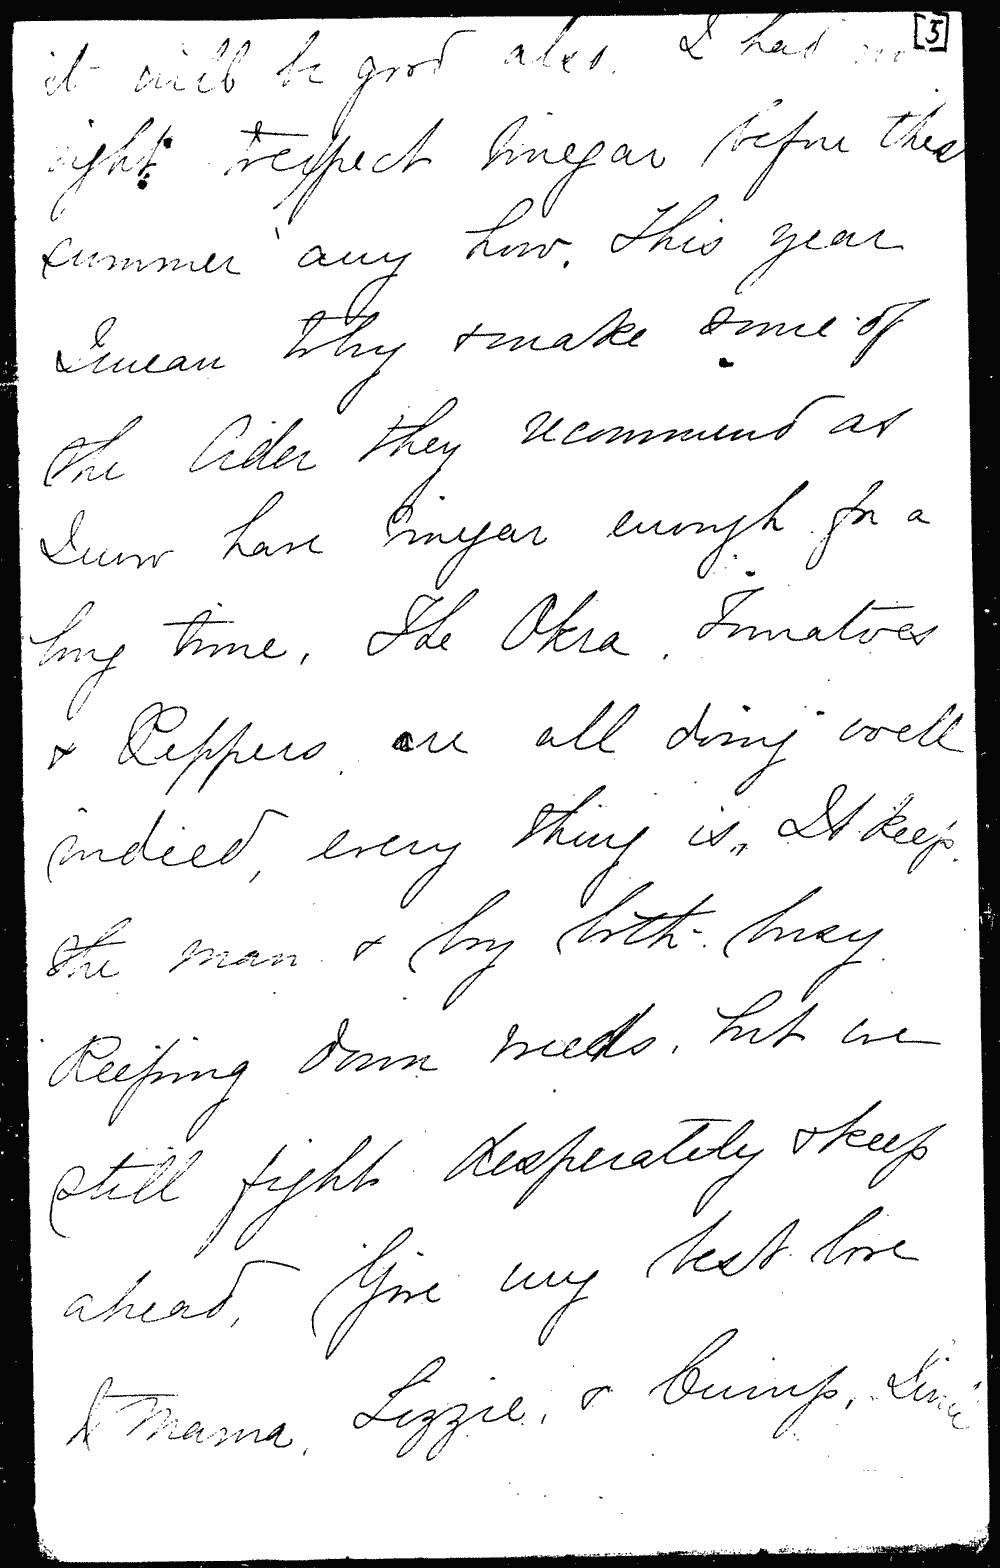 [5]
it will be good also. I had no
right to expect vinegar before this
summer any how. This year
I mean to try & make some of
the Cider they recommend as
I now have vinegar enough for a
long time. The Okra, Tomatoes
& Peppers are all doing well
indeed, every thing is, It keeps
the man & boy both busy
Keeping down weeds, but we
still fight desperately & keep
ahead, Give my best love
to Mama, Lizzie, &